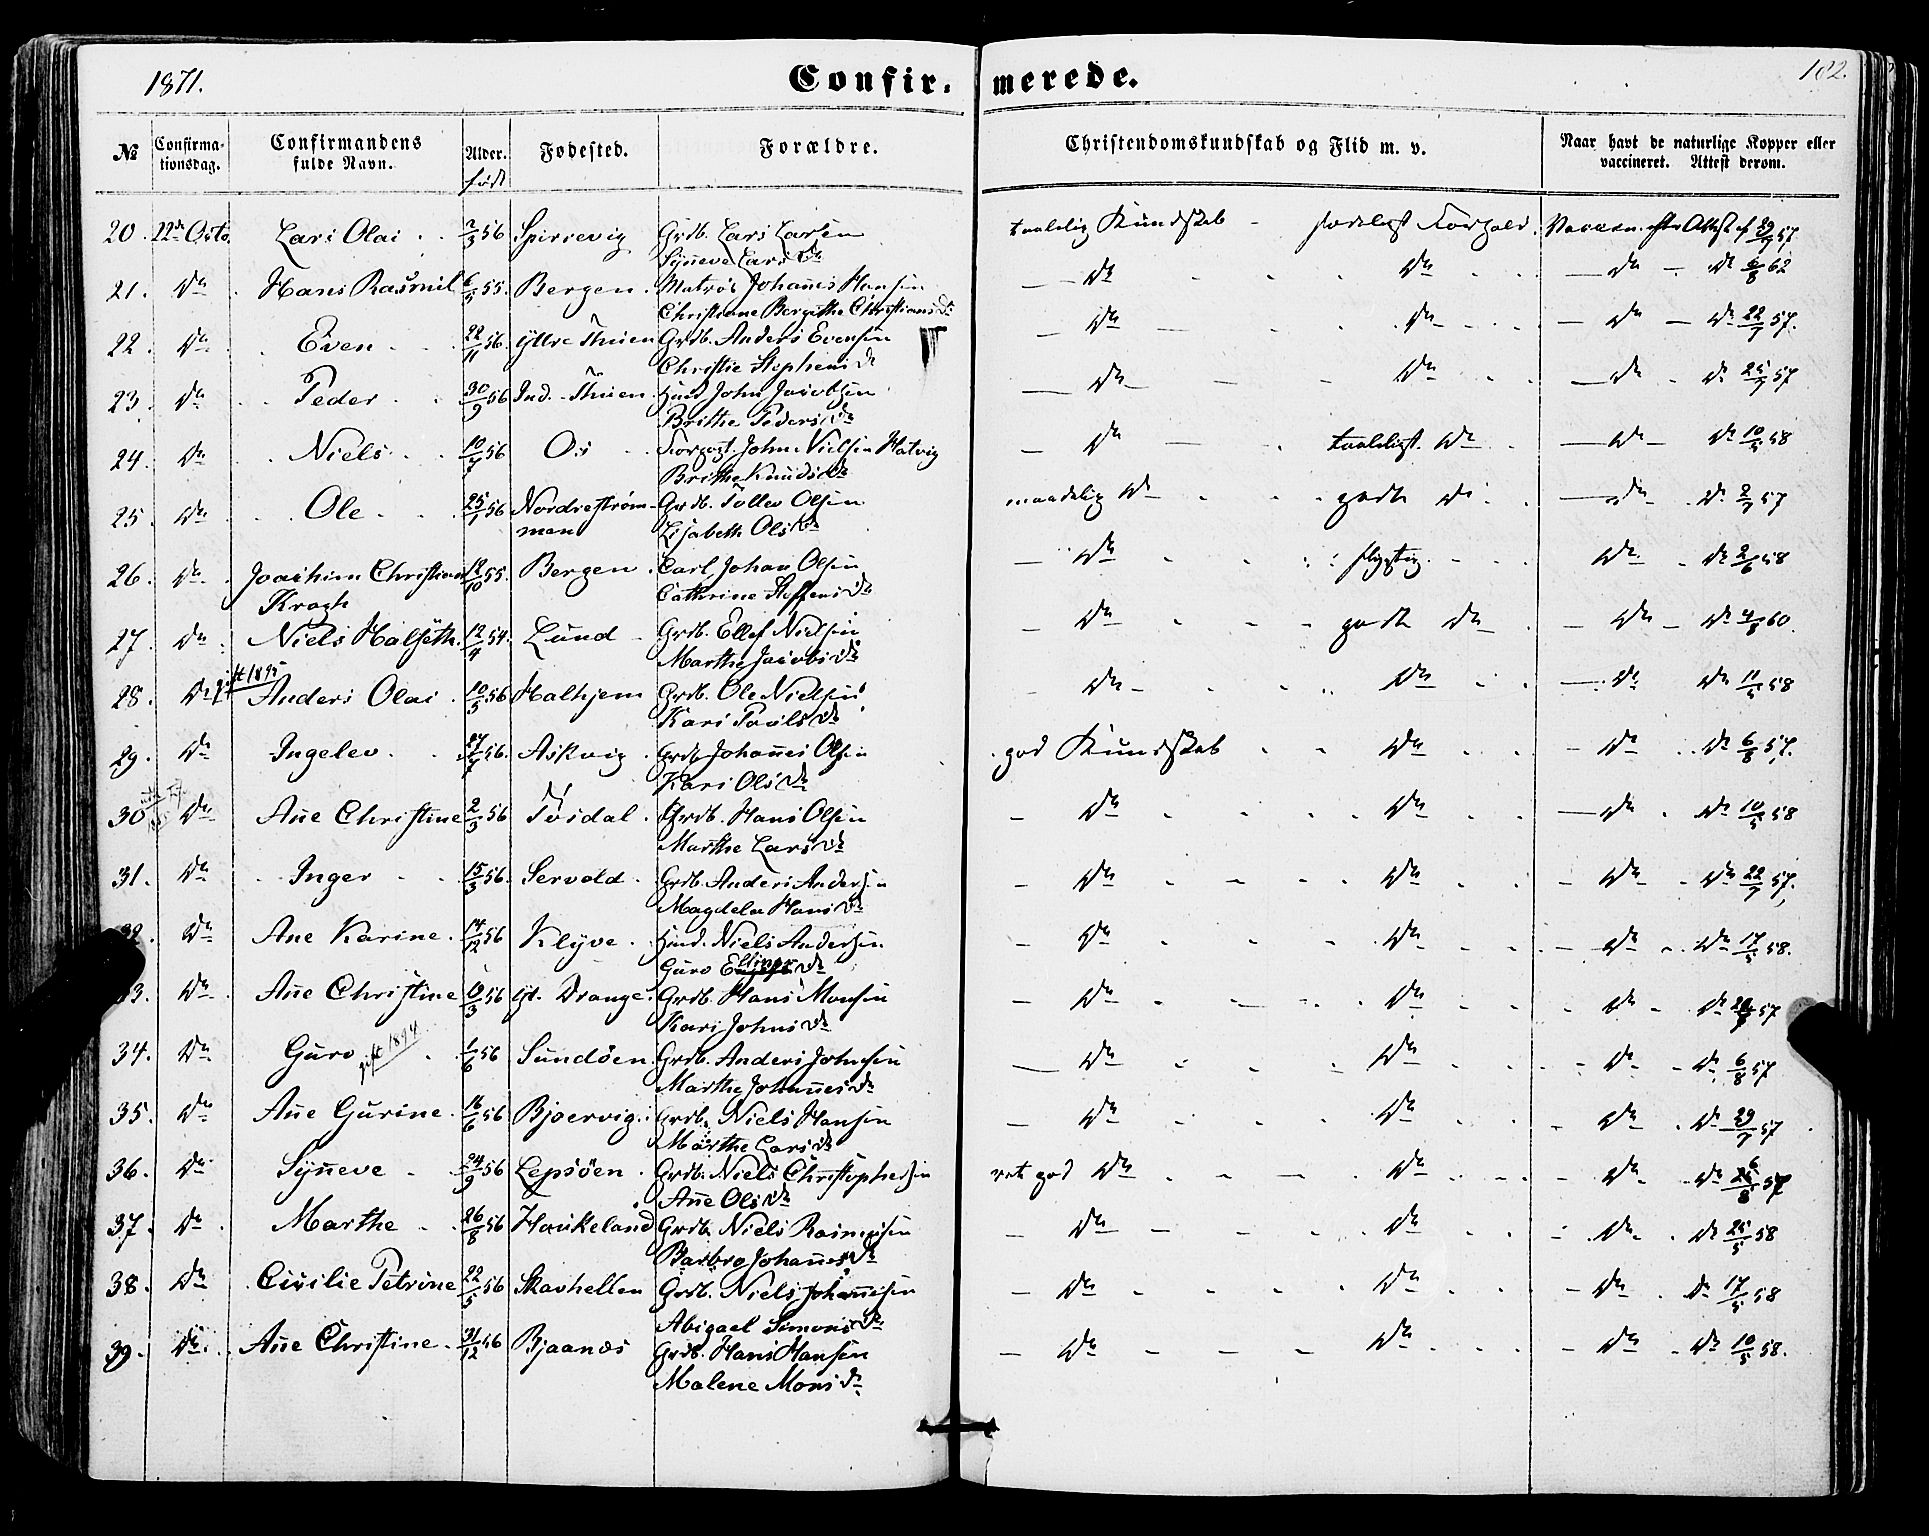 1871. Confirmerede. 182.
№ Confirmationsdag. Confirmandens fulde Navn. Alder. født Fødested. Forældre. Christendomskundskab og Flid m. v. Naar havt de naturlige Kopper eller vaccineret. Attest derom.
20. 22de Octo. Lars Olai 2/3 56 Spirrevig Grdb. Lars Larsen taalelig Kundskab - Forhold. Vaccin. efter Attest af 29/7 57.
Synneve Larsdr
21. Do Hans Rasmil 6/5 55. Bergen. Matros Johannes Hansen Do Do Do Do 6/8 62
Christiane Bergithe Christiansdr
22. Do Even 22/11 56. Ytre Thuen Grdb. Anders Evensen Do Do Do Do 22/7 57.
Christie Stephensdr
23. Do Peder 30/9 56 Ind. Thuen Huusd John Jacobsen Do Do Do Do 25/7 57
Brithe Pedersdr
24. Do Niels 10/7 56 Os Forpagt. John Nielsen Hatvig Do taaleligt Do Do Do 10/5 58
Brithe Knudsdr
25. Do Ole 25/1 56 Nordrestrøm- Grdb. Tollev Olsen maadelig Do godt Do Do Do 2/7 57
men Lisabeth Olsdr
26. Do Joachim Christian 12/10 55. Bergen. Carl Johan Olsen Do flygtig. Do Do 2/6 58
Krogh Cathrine Steffensdr
27. Do Niels Halseth. 12/4 54. Lund Grdb. Ellef Nielsen Do godt Do Do Do 4/8 60.
Marthe Jacobsdr
gift 1895
28. Do Anders Olai 10/5 56 Halhjem Grdb. Ole Nielsen Do Do Do Do 11/5 58
Kari Paulsdr
29. Do Ingelev 27/7 56. Askvig Grdb Johannes Olsen god Kundskab Do Do Do 6/8 57.
Kari Olsdr
30 Do Ane Christine 2/3 56 Tøsdal Grdb. Hans Olsen Do Do Do Do 10/5 58
Marthe Larsdr
31. Do Inger 15/3 56. Servold Grdb. Anders Andersen Do Do Do Do 22/7 57.
Magdela Hansdr
32. Do Ane Karine. 14/12 56 Klyve. Huusd. Niels Andersen Do Do Do Do 17/5 58.
Guro Ellingsdr
33. Do Ane Christine 6/3 56 Yt. Drange. Grdb. Hans Monsen Do Do Do Do 57
Kari Johnsdr
34. Do Guro gift 1894 1/6 56 Sundøen. Grdb. Anders Johnsen Do Do Do Do 6/8 57
Marthe Johannesdr
35. Do Ane Gurine 16/6 56 Bjoervig. Grdb. Niels Hansen Do Do Do Do 29/7 57
Marthe Larsdr
36. Do Synneve 24/9 56 Lepsøen Grdb. Niels Christophersen ret god Do Do Do Do 6/8 57
Ane Olsdr
37. Do Marthe 26/8 56 Haukeland Grdb. Niels Rasmusen Do Do Do Do 25/5 58
Barbro Johannesdr
38. Do Cisilie Petrine 22/5 56 Skavhellen Grdb. Niels Johannesen Do Do Do Do 17/5 58
Abigael Simonsdr
39. Do Ane Christine 31/12 56 Bjaanes Grdb. Hans Hansen Do Do Do Do 10/5 58.
Malene Monsdr